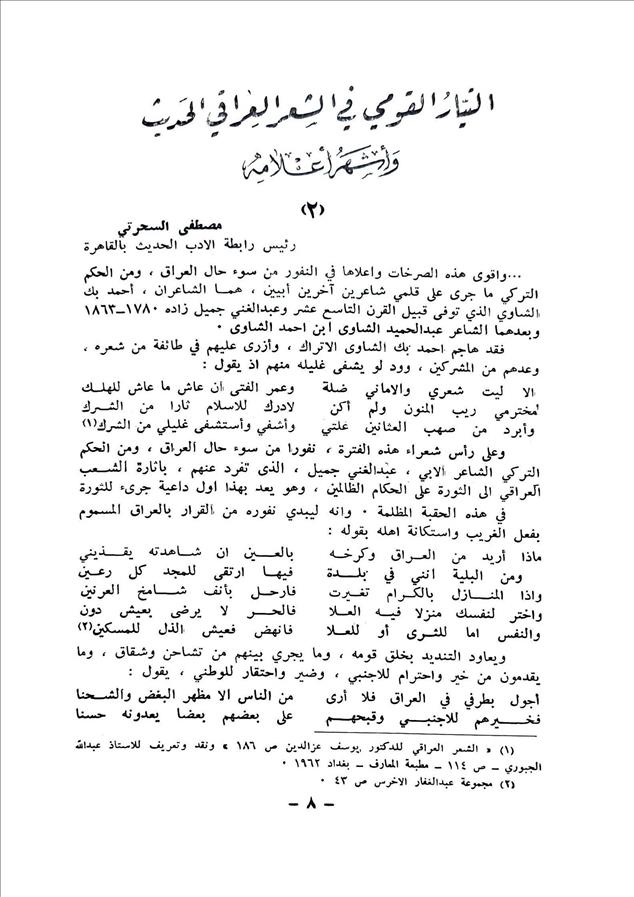 التيار القومي في الشعر العراقي الحديث
وأشهر أعلامه
(٢)
مصطفى السحرتي
رئيس رابطة الادب الحديث بالقاهرة
...واقوى هذه الصرخات واعلاها في النفور من سوء حال العراق ، ومن الحكم
التركي ما جرى على قلمي شاعرين آخرين أبيين ، همـا الشاعران ، أحمد بك
الشاوي الذي توفى قبيل القرن التاسع عشر وعبدالغني جميل زاده ١٧٨٠–١٨٦٣
وبعدهما الشاعر عبدالحميد الشاوى ابن احمد الشاوى ٠
فقد هاجم احمد بك الشاوى الاتراك ، وأزرى عليهم في طائفة من شعره ،
وعدهم من المشركين ، وود لو يشفى غليله منهم اذ يقول :
الا ليت شعري والاماني ضلة وعمر الفتى ان عاش ما عاش للهلك
لمخترمي ريب المنون ولم أكن لادرك للاسلام ثارا من الشرك
وأبرد من صهب العثانين غلتي وأشفي وأستشفى غليلي من الشرك(١)
وعلى رأس شعراء هذه الفترة ، نفورا من سوء حال العراق ، ومن الحكم
التركي الشاعر الابي ، عبدالغني جميل ، الذى تفرد عنهم ، بأثارة الشعب
العراقي الى الثورة على الحكام الظالمين ، وهو يعد بهذا اول داعية جرىء للثورة
في هذه الحقبة المظلمة ٠ وانه ليبدي نفوره من القرار بالعراق المسموم
بفعل الغريب واستكانة اهله بقوله :
ماذا أريد من العراق وكرخـه بالعـين ان شـاهدته يقـذيني
ومن البلية انني في بلـدة فيهـا ارتقى للمجد كل رعـين
واذا المنـازل بالكرام تغيرت فارحل بأنف شـامخ العرنين
واختر لنفسك منزلا فيه العـلا فالحـر لا يرضى بعيش دون
والنفس اما للثرى أو للعلا فانهض فعيش الذل للمسكين(٢)
ويعاود التنديد بخلق قومه ، وما يجري بينهم من تشاحن وشقاق ، وما
يقدمون من خير واحترام للاجنبي ، وضير واحتقار للوطني ، يقول :
أجول بطرفي في العراق فلا أرى من الناس الا مظهر البغض والشـحنا
فخـيرهم للاجنبـي وقبحهـم على بعضهم بعضا يعدونه حسنا
(١) « الشعر العراقي للدكتور يوسف عزالدين ص ١٨٦ » ونقد وتعريف للاستاذ عبدالله
الجبوري – ص ١١٤ – مطبعة المعارف – بغداد ١٩٦٢ ٠
(٢) مجموعة عبدالغفار الاخرس ص ٤٣ ٠
– ٨ –